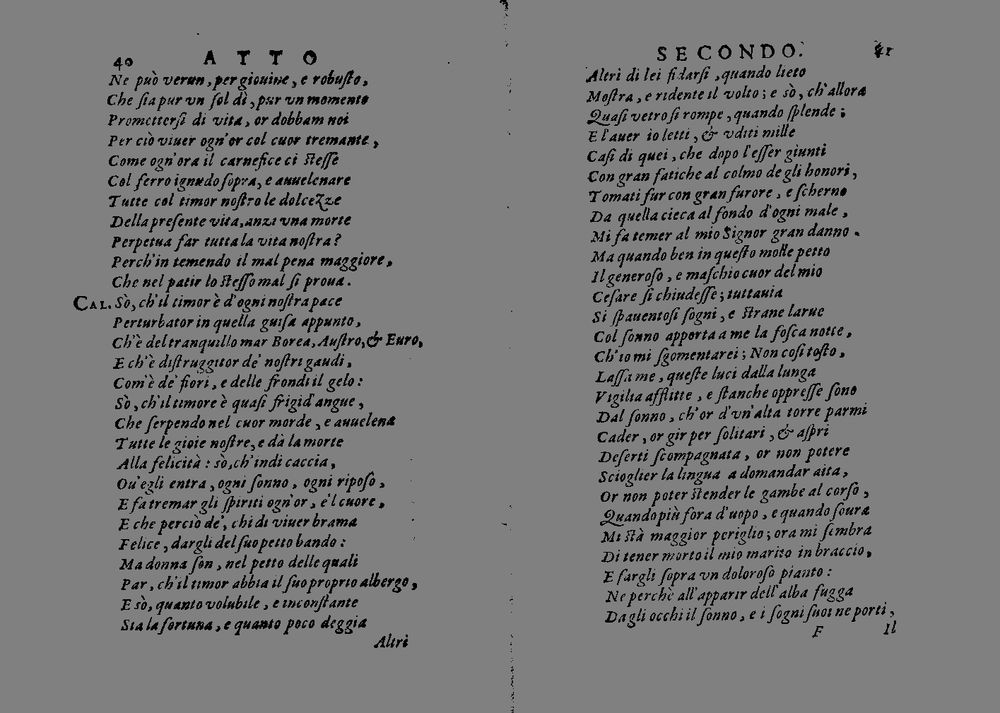 40 ATTO
Ne può verun, per giouine, e robusto,
Che sia pur vn sol dì, pur vn momento
Promettersi di vita, or dobbam noi
Per ciò viuer ogn'or col cuor tremante,
Come ogn'ora il carnefice ci stesse
Col ferro ignudo sopra, e auuelenare
Tutte col timor nostro le dolcezze
Della presente vita, anzi vna morte
Perpetua far tutta la vita nostra?
Perch'in temendo il mal pena maggiore,
Che nel patir lo stesso mal si proua.
CAL. Sò, ch'il timor è d'ogni nostra pace
Perturbator in quella guisa appunto,
Ch'è del tranquillo mar Borea, Austro, & Euro,
E ch'è distruggitor de' nostri gaudi,
Com'è de' fiori, e delle frondi il gelo:
Sò, ch'il timore è quasi frigid'angue,
Che serpendo nel cuor morde, e auuelena
Tutte le gioie nostre, e dà la morte
Alla felicità: sò, ch'indi caccia,
Ou'egli entra, ogni sonno, ogni riposo,
E fa tremar gli spiriti ogn'or, e'l cuore,
E che perciò de', chi di viuer brama
Felice, dargli del suo petto bando:
Ma donna son, nel petto delle quali
Par, ch'il timor abbia il suo proprio albergo,
E sò, quanto volubile, e inconstante
Sia la fortuna, e quanto poco deggia
Altri
SECONDO. 41
Altri di lei fidarsi, quando lieto
Mostra, e ridente il volto; e sò, ch'allora
Quasi vetro si rompe, quando splende;
E l'auer io letti, & vditi mille
Casi di quei, che dopo l'esser giunti
Con gran fatiche al colmo degli honori,
Tomati fur con gran furore, e scherno
Da quella cieca al fondo d'ogni male,
Mi fa temer al mio Signor gran danno.
Ma quando ben in questo molle petto
Il generoso, e maschio cuor del mio
Cesare si chiudesse; tuttauia
Si spauentosi sogni, e strane larue
Col sonno apporta a me la fosca notte,
Ch'io mi sgomentarei; Non così tosto,
Lassa me, queste luci dalla lunga
Vigilia afflitte, e stanche oppresse sono
Dal sonno, ch'or d'vn'alta torre parmi
Cader, or gir per solitari, & aspri
Deserti scompagnata, or non potere
Scioglier la lingua a domandar aita,
Or non poter stender le gambe al corso,
Quando più fora d'uopo, e quando soura
Mi stà maggior periglio; ora mi sembra
Di tener morto il mio marito in braccio,
E fargli sopra vn doloroso pianto:
Ne perchè all'apparir dell'alba fugga
Dagli occhi il sonno, e i sogni suoi ne porti,
F Il